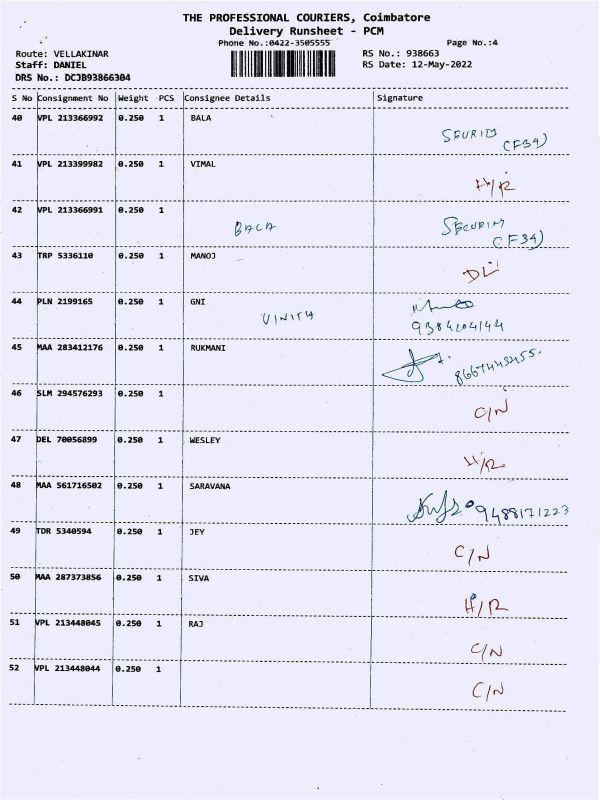 THE PROFESSIONAL COURIERS, Coimbatore
Delivery Runsheet - PCM
Phone No.:0422-3505555 Page No.:4
Route: VELLAKINAR RS No.: 938663
Staff: DANIEL RS Date: 12-May-2022
DRS No.: DCJB93866304
S No Consignment No Weight PCS Consignee Details Signature
40 VPL 213366992 0.250 1 BALA
(F34)
41 VPL 213399982 0.250 1 VIMAL
H/R
42 VPL 213366991 0.250 1
BALA SECURITY
(F34)
43 TRP 5336110 0.250 1 MANOJ
DL
44 PLN 2199165 0.250 1 GNI
VINITH
9384204144
45 MAA 283412176 0.250 1 RUKMANI
8667443455.
46 SLM 294576293 0.250 1
C/N
47 DEL 70056899 0.250 1 WESLEY
H/R
48 MAA 561716502 0.250 1 SARAVANA
9488171223
49 TDR 5340594 0.250 1 JEY
C/N
50 MAA 287373856 0.250 1 SIVA
H/R
51 VPL 213448045 0.250 1 RAJ
C/N
52 VPL 213448044 0.250 1
C/N